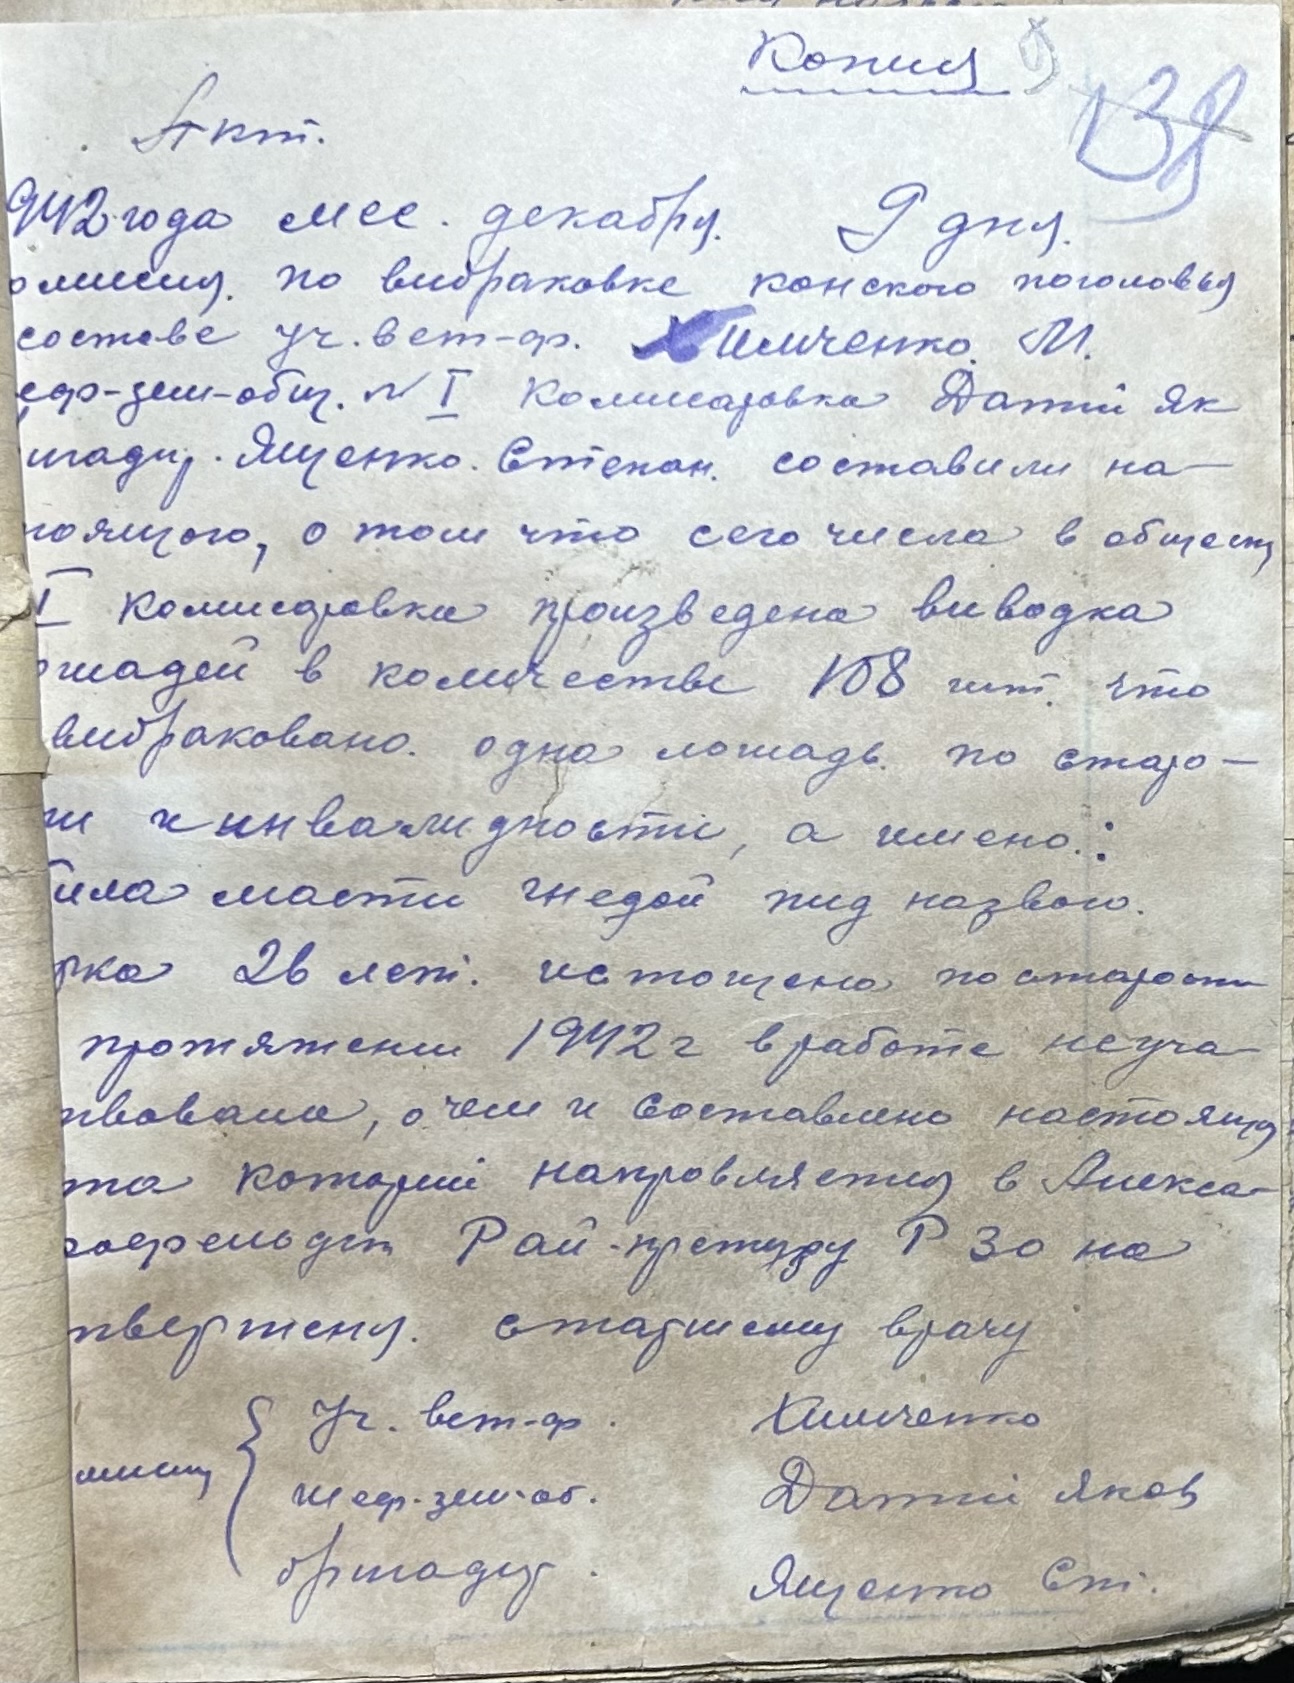 Копия
138
Акт.
942 года мес. декабря. 9 дня.
омисия. по вибраковке конского поголовья
составе уч. вет-ф. Химченко. М.
еф-зем-общ. N I Комисаровка Датий Як
игадир. Ященко. Степан. составили на-
тоящого, о том что сего числа в общест
I Комисаровка произведена виводка
ошадей в количестве 108 шт. что
вибраковано. одна лошадь. по старо-
ти и инвалидности, а имено.:
била масти гнедой пид назвою.
рка 26 лет. истощена по старости
протяжении 1942 г в работе неуча-
твовала, о чем и составлено настоящ
та которий направляется в Алекса-
рофельдт Рай-претуру РЗО на
тверженя. старшему врачу
Уч. вет-ф. Химченко
мисия
шеф-зем-об. Датий Яков
бригадир. Ященко Ст.